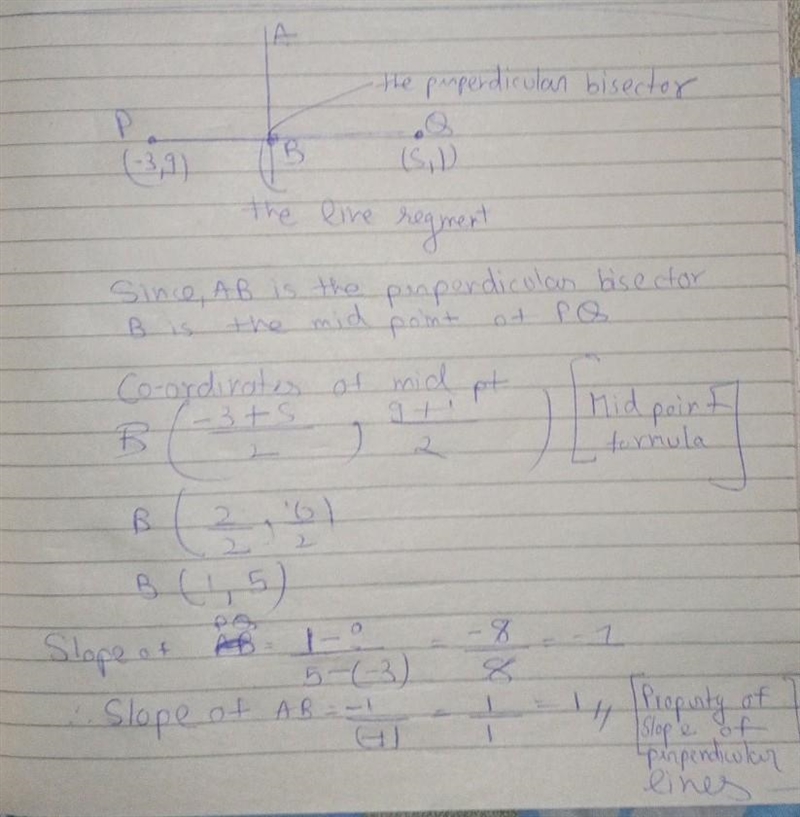 A
the purperdicular bisector
P
Q
B
(-3,9)
(5,1)
the line segment
Since, AB is the purperdicular bisector
B is the mid point of PQ
Co-ordinates of mid pt
B (-3+5/2, 9+1/2) [Mid point formula]
B (2/2, 10/2)
B (1, 5)
Slope of PQ = 1-9/5-(-3) = -8/8 = -1
∴ Slope of AB = -1/(-1) = 1/1 = 1 // [Property of
slope of
purperdicular
lines